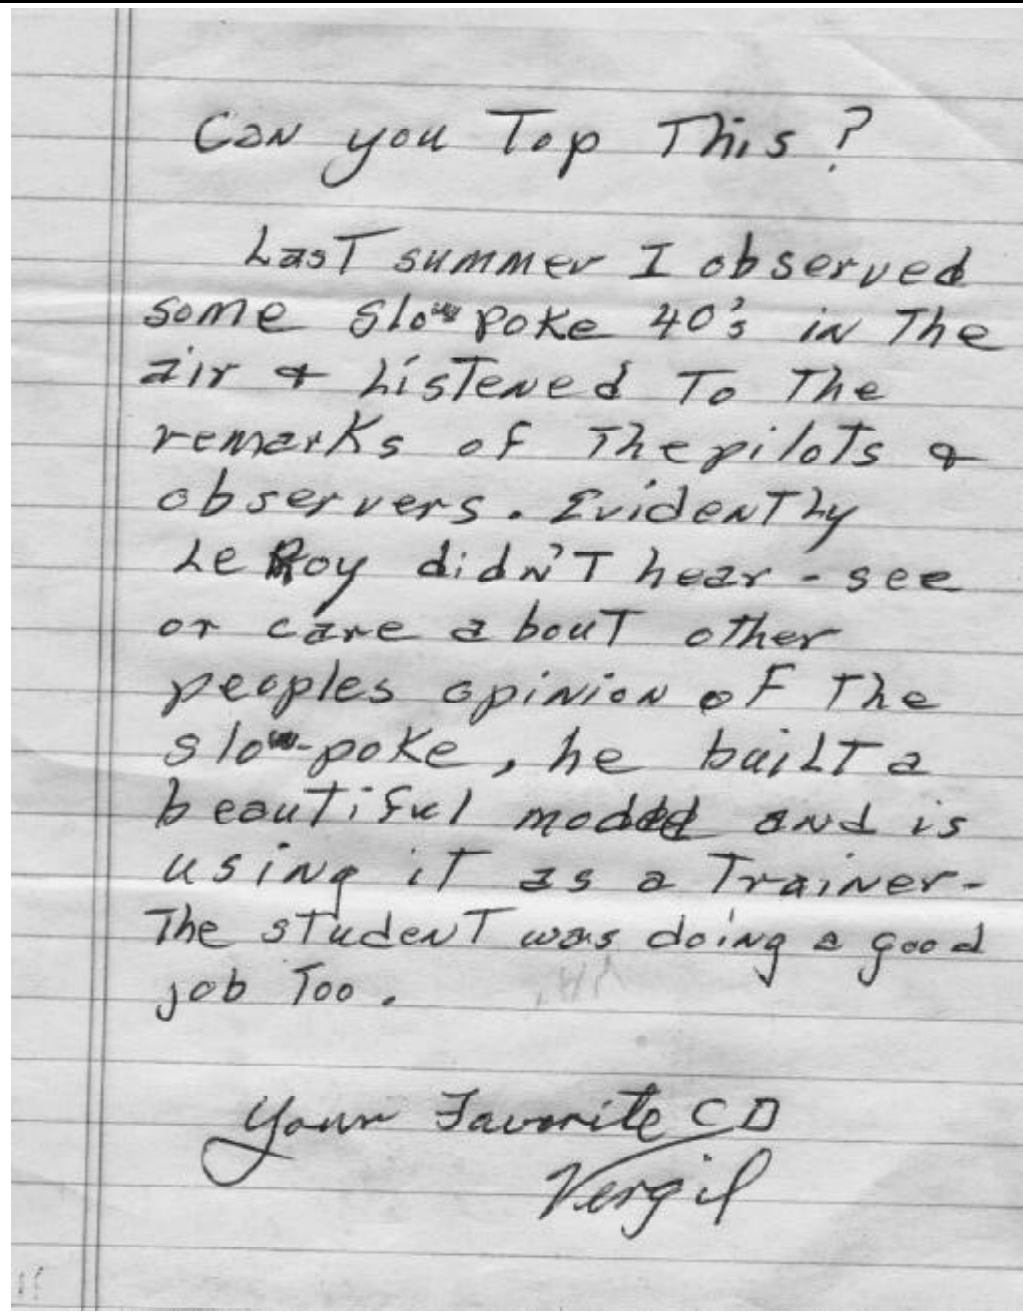 Can you Top This?
Last summer I observed
some slow poke 40's in The
air & Listened To The
remarks of The pilots &
observers. Evidently
Le Roy didn't hear - see
or care about other
peoples opinion of The
slow-poke, he built a
beautiful model and is
using it as a Trainer-
The student was doing a good
job Too.
Your Favorite CD
Vergil